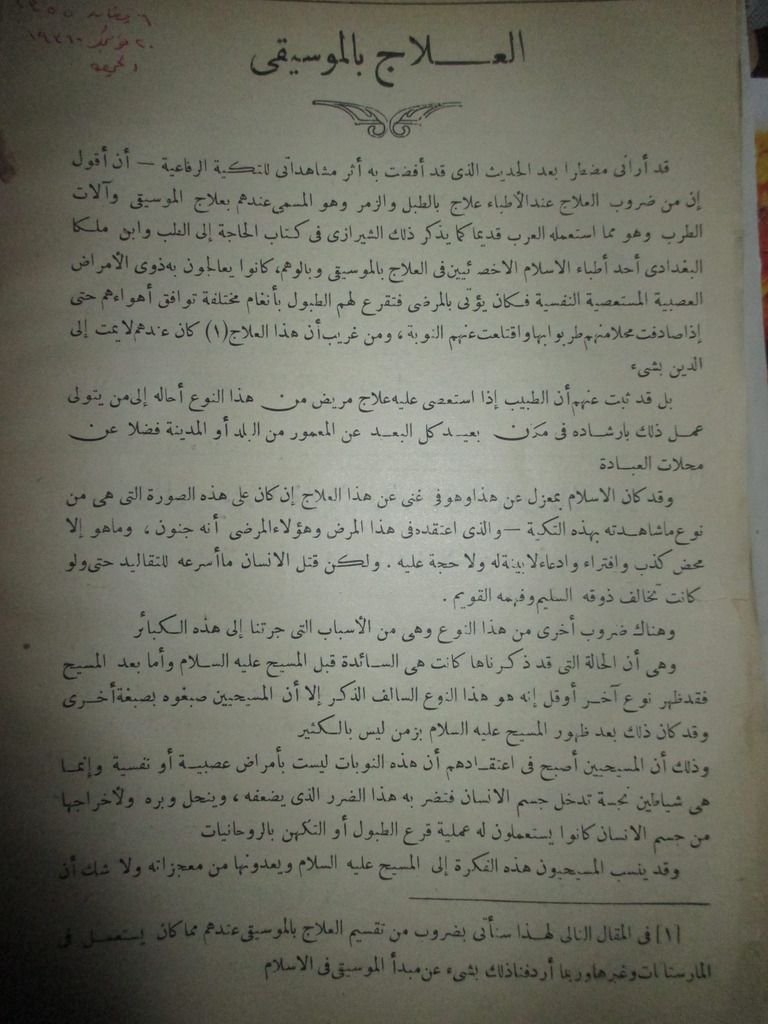 ٦ رمضان ١٣٥٥
٢٠ نوفمبر ١٩٣٦
الجمعة
العــــلاج بالموسيقى
قد أرانى مضطرا بعد الحديث الذى قد أفضت به أثر مشاهداتى للتكية الرفاعية — أن أقول
إن من ضروب العلاج عند الأطباء علاج بالطبل والزمر وهو المسمى عندهم بعلاج الموسيقى وآلات
الطرب وهو مما استعمله العرب قديما كما يذكر ذلك الشيرازى فى كتاب الحاجة إلى الطب وابن ملكا
البغدادى أحد أطباء الاسلام الاخصائيين فى العلاج بالموسيقى وبالوهم، كانوا يعالجون به ذوى الأمراض
العصبية المستعصية النفسية فكان يؤتى بالمرضى فتقرع لهم الطبول بأنغام مختلفة توافق أهواءهم حتى
إذا صادفت محلا منهم طربوا بها واقتلعت عنهم النوبة ، ومن غريب أن هذا العلاج (١) كان عندهم لا يمت إلى
الدين بشىء
بل قد ثبت عنهم أن الطبيب إذا استعصى عليه علاج مريض من هذا النوع أحاله إلى من يتولى
عمل ذلك بارشاده فى مكان بعيد كل البعد عن المعمور من البلد أو المدينة فضلا عن
محلات العبادة
وقد كان الاسلام بمعزل عن هذا وهو فى غنى عن هذا العلاج إن كان على هذه الصورة التى هى من
نوع ما شاهدته بهذه التكية — والذى اعتقده فى هذا المرض وهؤلاء المرضى أنه جنون ، وما هو إلا
محض كذب وافتراء وادعاء لا بينة له ولا حجة عليه . ولكن قتل الانسان ما أسرعه للتقاليد حتى ولو
كانت تخالف ذوقه السليم وفهمه القويم .
وهناك ضروب أخرى من هذا النوع وهى من الأسباب التى جرتنا إلى هذه الكبائر
وهى أن الحالة التى قد ذكرناها كانت هى السائدة قبل المسيح عليه السلام وأما بعد المسيح
فقد ظهر نوع آخر أو قل إنه هو هذا النوع السالف الذكر إلا أن المسيحيين صبغوه بصبغة أخرى
وقد كان ذلك بعد ظهور المسيح عليه السلام بزمن ليس بالكثير
وذلك أن المسيحيين أصبح فى اعتقادهم أن هذه النوبات ليست بأمراض عصبية أو نفسية وإنما
هى شياطين نجسة تدخل جسم الانسان فتضر به هذا الضرر الذى يضعفه ، وينحل وبره ولأخراجها
من جسم الانسان كانوا يستعملون له عملية قرع الطبول أو التكهن بالروحانيات
وقد ينسب المسيحيون هذه الفكرة إلى المسيح عليه السلام ويعدونها من معجزاته ولا شك أن
[١] فى المقال التالى لهذا سنأتى بضروب من تقسيم العلاج بالموسيقى عندهم مما كان يستعمل فى
المارستانات وغيرها وربما أردفنا ذلك بشىء عن مبدأ الموسيقى فى الاسلام